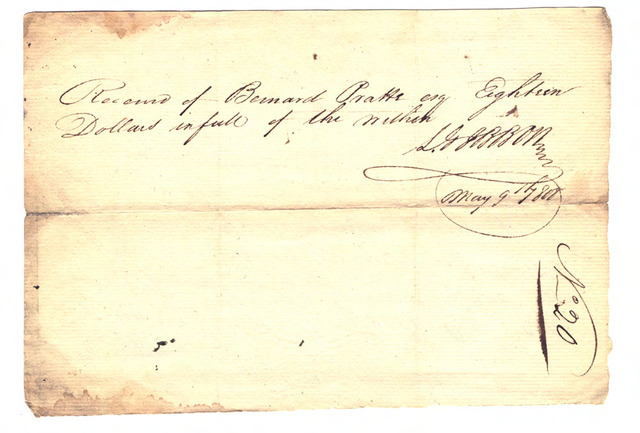 Received of Bernard Pratte esq Eighteen
Dollars in full of the within
May 9th
No 20